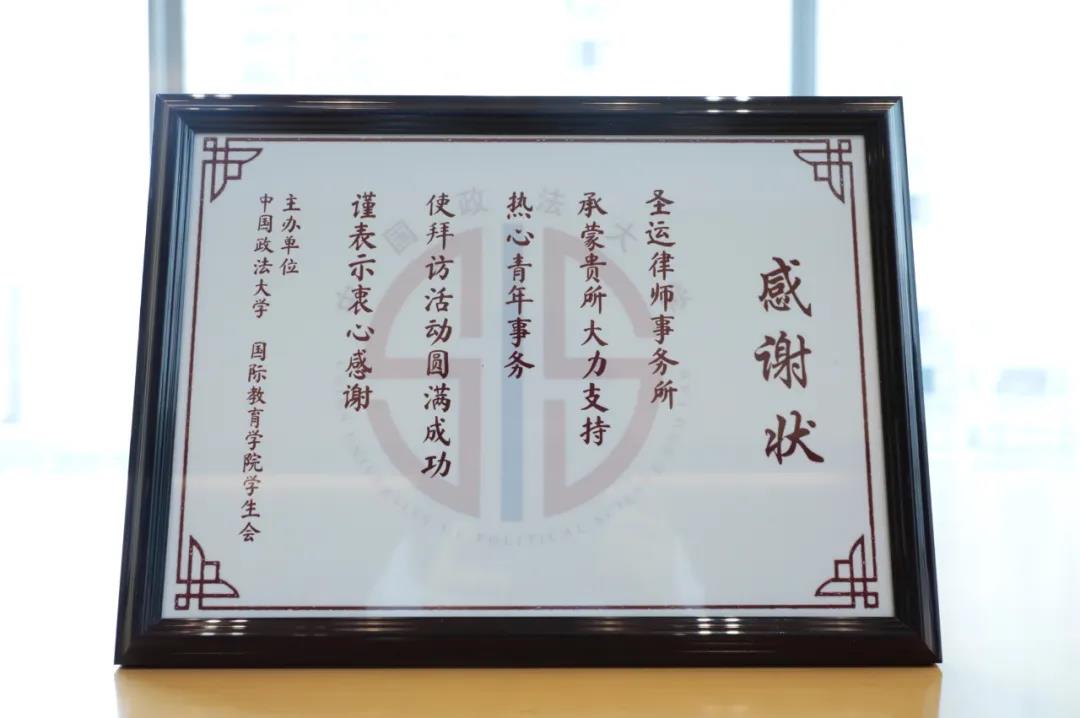 感谢状
圣运律师事务所
承蒙贵所大力支持
热心青年事务
使拜访活动圆满成功
谨表示衷心感谢
主办单位
中国政法大学 国际教育学院学生会